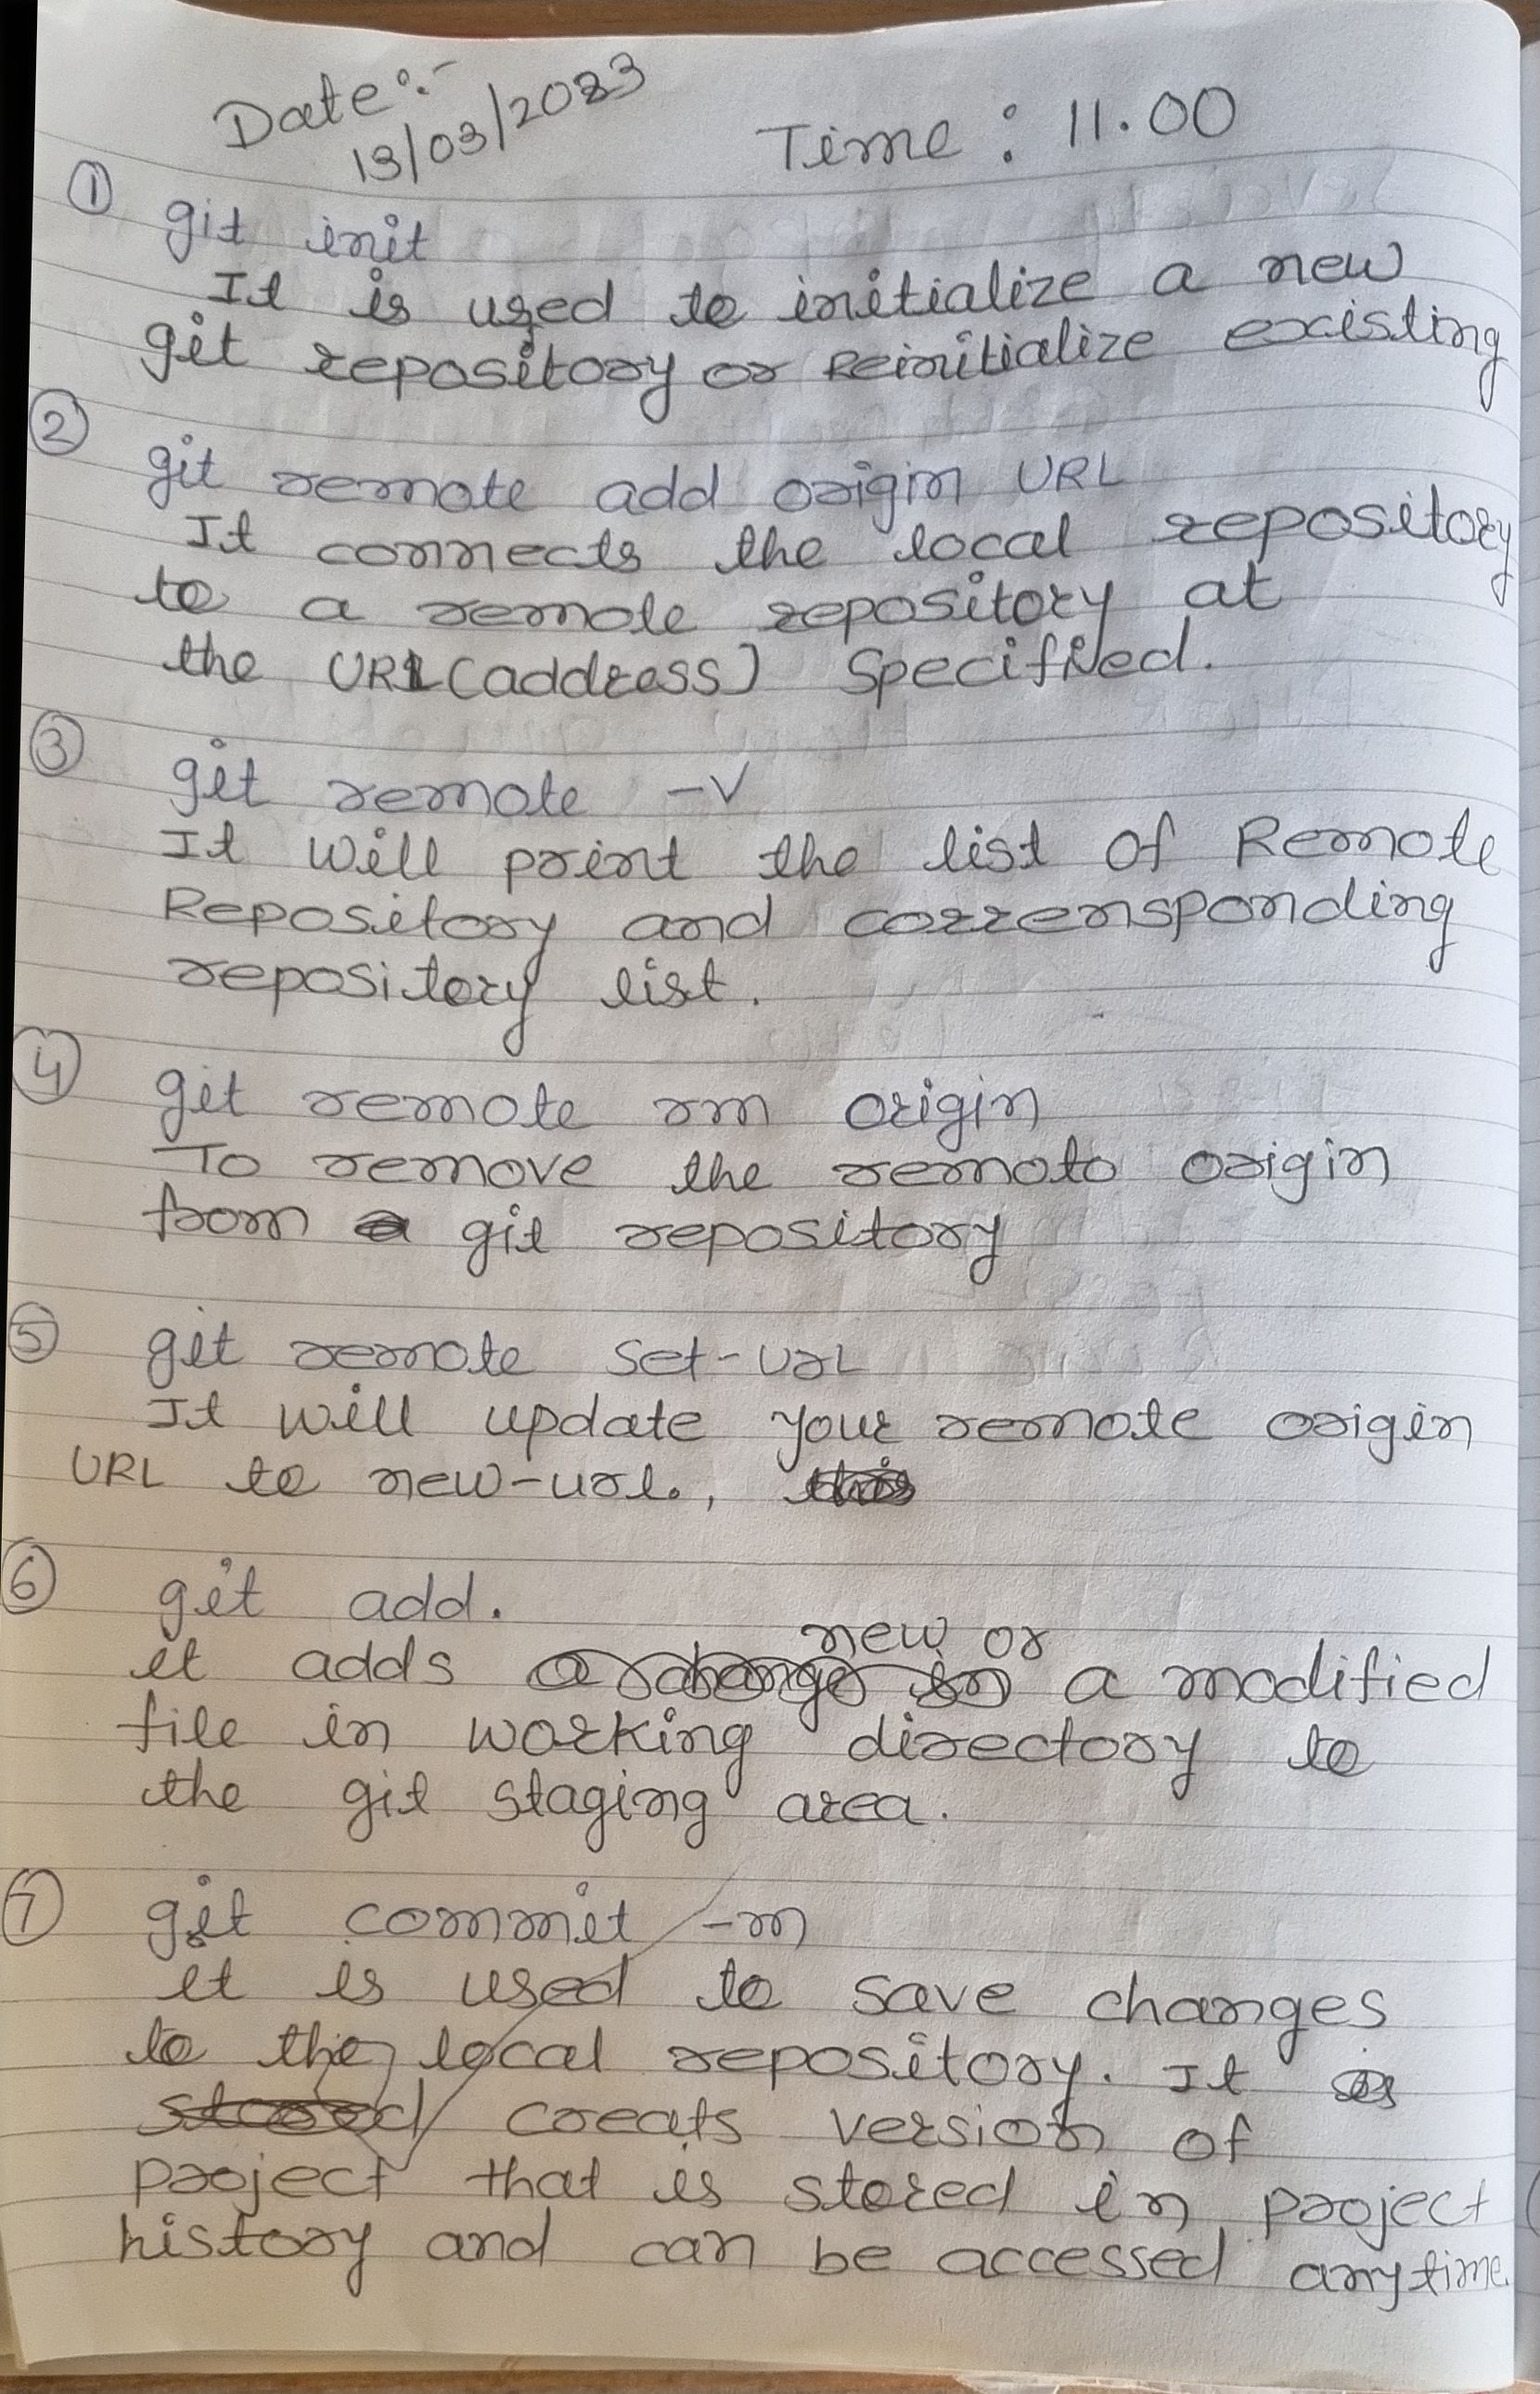 Date:-
13/03/2023
Time : 11.00
① git init
It is used to initialize a new
git repository or Reinitialize existing
② git remote add origin URL
It connects the local repository
to a remote repository at
the URL (address) Specified.
③ git remote -v
It will print the list of Remote
Repository and corrensponding
repository list.
④ git remote rm origin
To remove the remoto origin
from a git repository
⑤ git remote set-url
It will update your remote origin
URL to new-url., this
⑥ git add.
new or
it adds a change in a modified
file in working directory to
the git staging area.
⑦ git commit -m
it is used to save changes
to the local repository. It is
stored creats version of
project that is stored in project
history and can be accessed anytime.